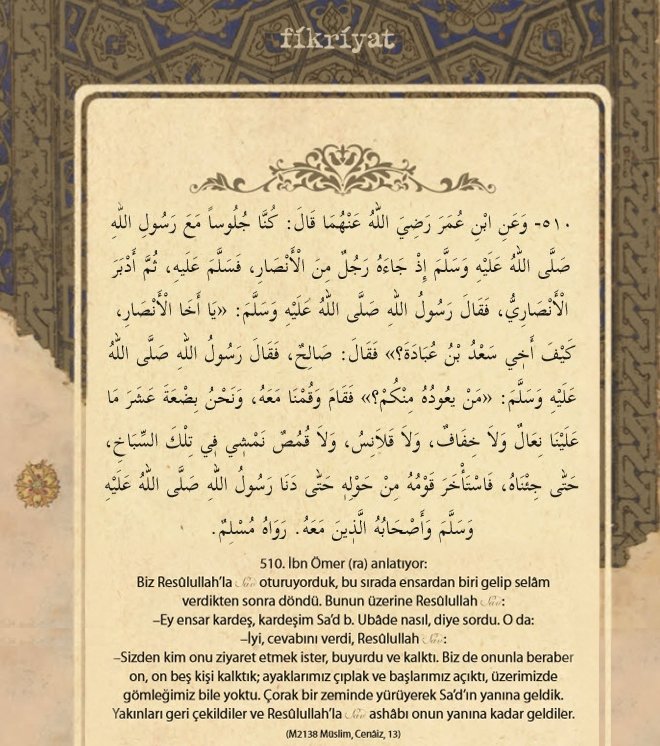 fikriyat
٥١٠- وَعَنِ ابْنِ عُمَرَ رَضِيَ اللهُ عَنْهُمَا قَالَ: كُنَّا جُلُوساً مَعَ رَسُولِ اللهِ
صَلَّى اللهُ عَلَيْهِ وَسَلَّمَ إِذْ جَاءَهُ رَجُلٌ مِنَ الْأَنْصَارِ، فَسَلَّمَ عَلَيهِ، ثُمَّ أَدْبَرَ
الْأَنْصَارِيُّ، فَقَالَ رَسُولُ اللهِ صَلَّى اللهُ عَلَيْهِ وَسَلَّمَ: «يَا أَخَا الْأَنْصَارِ،
كَيْفَ أَخِي سَعْدُ بْنُ عُبَادَةَ؟» فَقَالَ: صَالِحٌ، فَقَالَ رَسُولُ اللهِ صَلَّى اللهُ
عَلَيْهِ وَسَلَّمَ: «مَنْ يَعُودُهُ مِنْكُمْ؟» فَقَامَ وَقُمْنَا مَعَهُ، وَنَحْنُ بِضْعَةَ عَشَرَ مَا
عَلَيْنَا نِعَالٌ وَلَا خِفَافٌ، وَلَا قَلَانِسُ، وَلَا قُمُصٌ نَمْشِي فِي تِلْكَ السِّبَاخِ،
حَتَّى جِئْنَاهُ، فَاسْتَأْخَرَ قَوْمُهُ مِنْ حَوْلِهِ حَتَّى دَنَا رَسُولُ اللهِ صَلَّى اللهُ عَلَيْهِ
وَسَلَّمَ وَأَصْحَابُهُ الَّذِينَ مَعَهُ. رَوَاهُ مُسْلِمٌ.
510. İbn Ömer (ra) anlatıyor:
Biz Resûlullah’la Sav oturuyorduk, bu sırada ensardan biri gelip selâm
verdikten sonra döndü. Bunun üzerine Resûlullah Sav:
–Ey ensar kardeş, kardeşim Sa’d b. Ubâde nasıl, diye sordu. O da:
–İyi, cevabını verdi, Resûlullah Sav:
–Sizden kim onu ziyaret etmek ister, buyurdu ve kalktı. Biz de onunla beraber
on, on beş kişi kalktık; ayaklarımız çıplak ve başlarımız açıktı, üzerimizde
gömleğimiz bile yoktu. Çorak bir zeminde yürüyerek Sa’d’ın yanına geldik.
Yakınları geri çekildiler ve Resûlullah’la Sav ashâbı onun yanına kadar geldiler.
(M2138 Müslim, Cenâiz, 13)